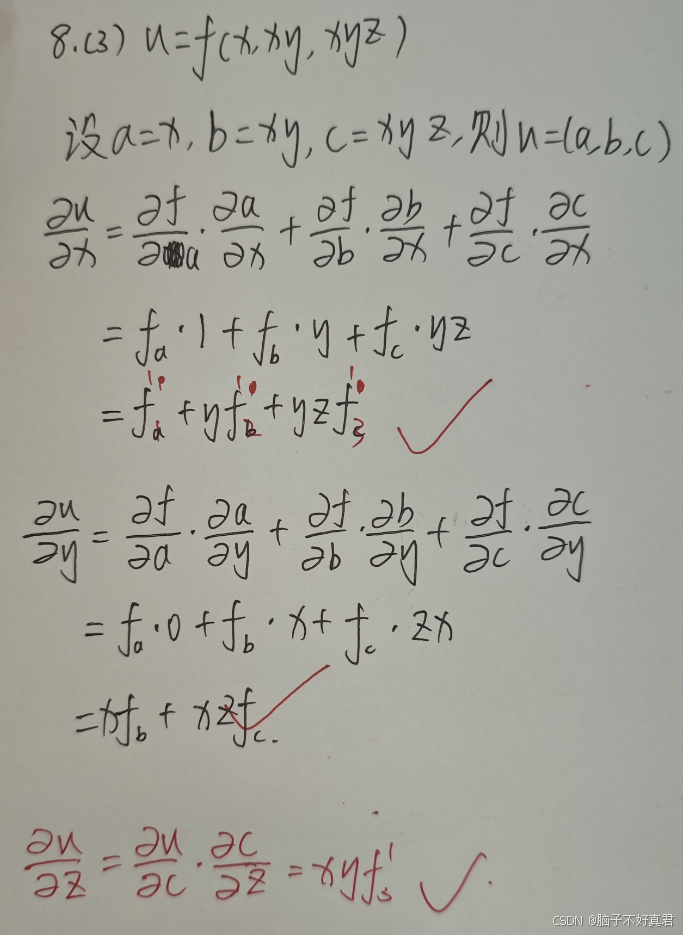 8.(3) u=f(x,xy,xyz)
设a=x,b=xy,c=xyz,则u=(a,b,c)
∂u/∂x=∂f/∂a·∂a/∂x+∂f/∂b·∂b/∂x+∂f/∂c·∂c/∂x
=fₐ·1+f_b·y+f_c·yz
=f'+yf'₂+yzf'₃
∂u/∂y=∂f/∂a·∂a/∂y+∂f/∂b·∂b/∂y+∂f/∂c·∂c/∂y
=fₐ·0+f_b·x+f_c·zx
=xf_b+xzf_c.
∂u/∂z=∂u/∂c·∂c/∂z=xyf'₃
CSDN @脑子不好真君